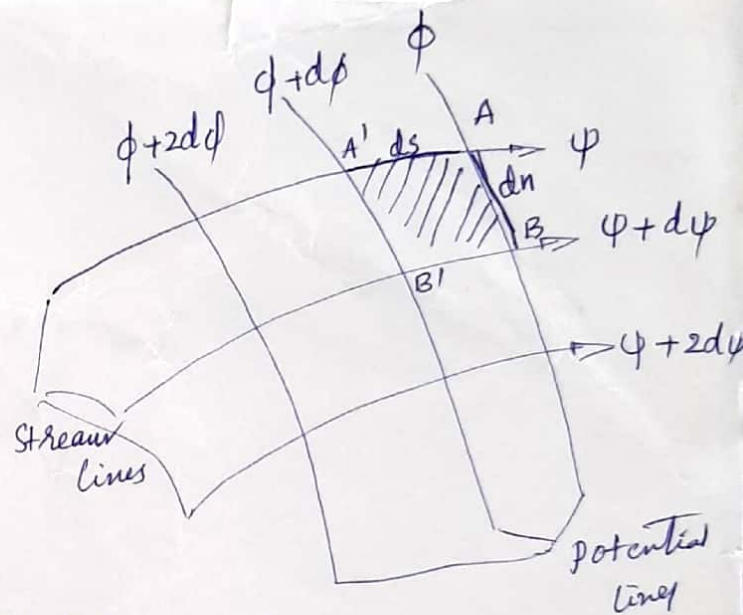 ϕ
ϕ+dϕ
ϕ+2dϕ
A
A'
ds
ψ
dn
B
ψ+dψ
B'
ψ+2dψ
Stream
lines
Potential
lines